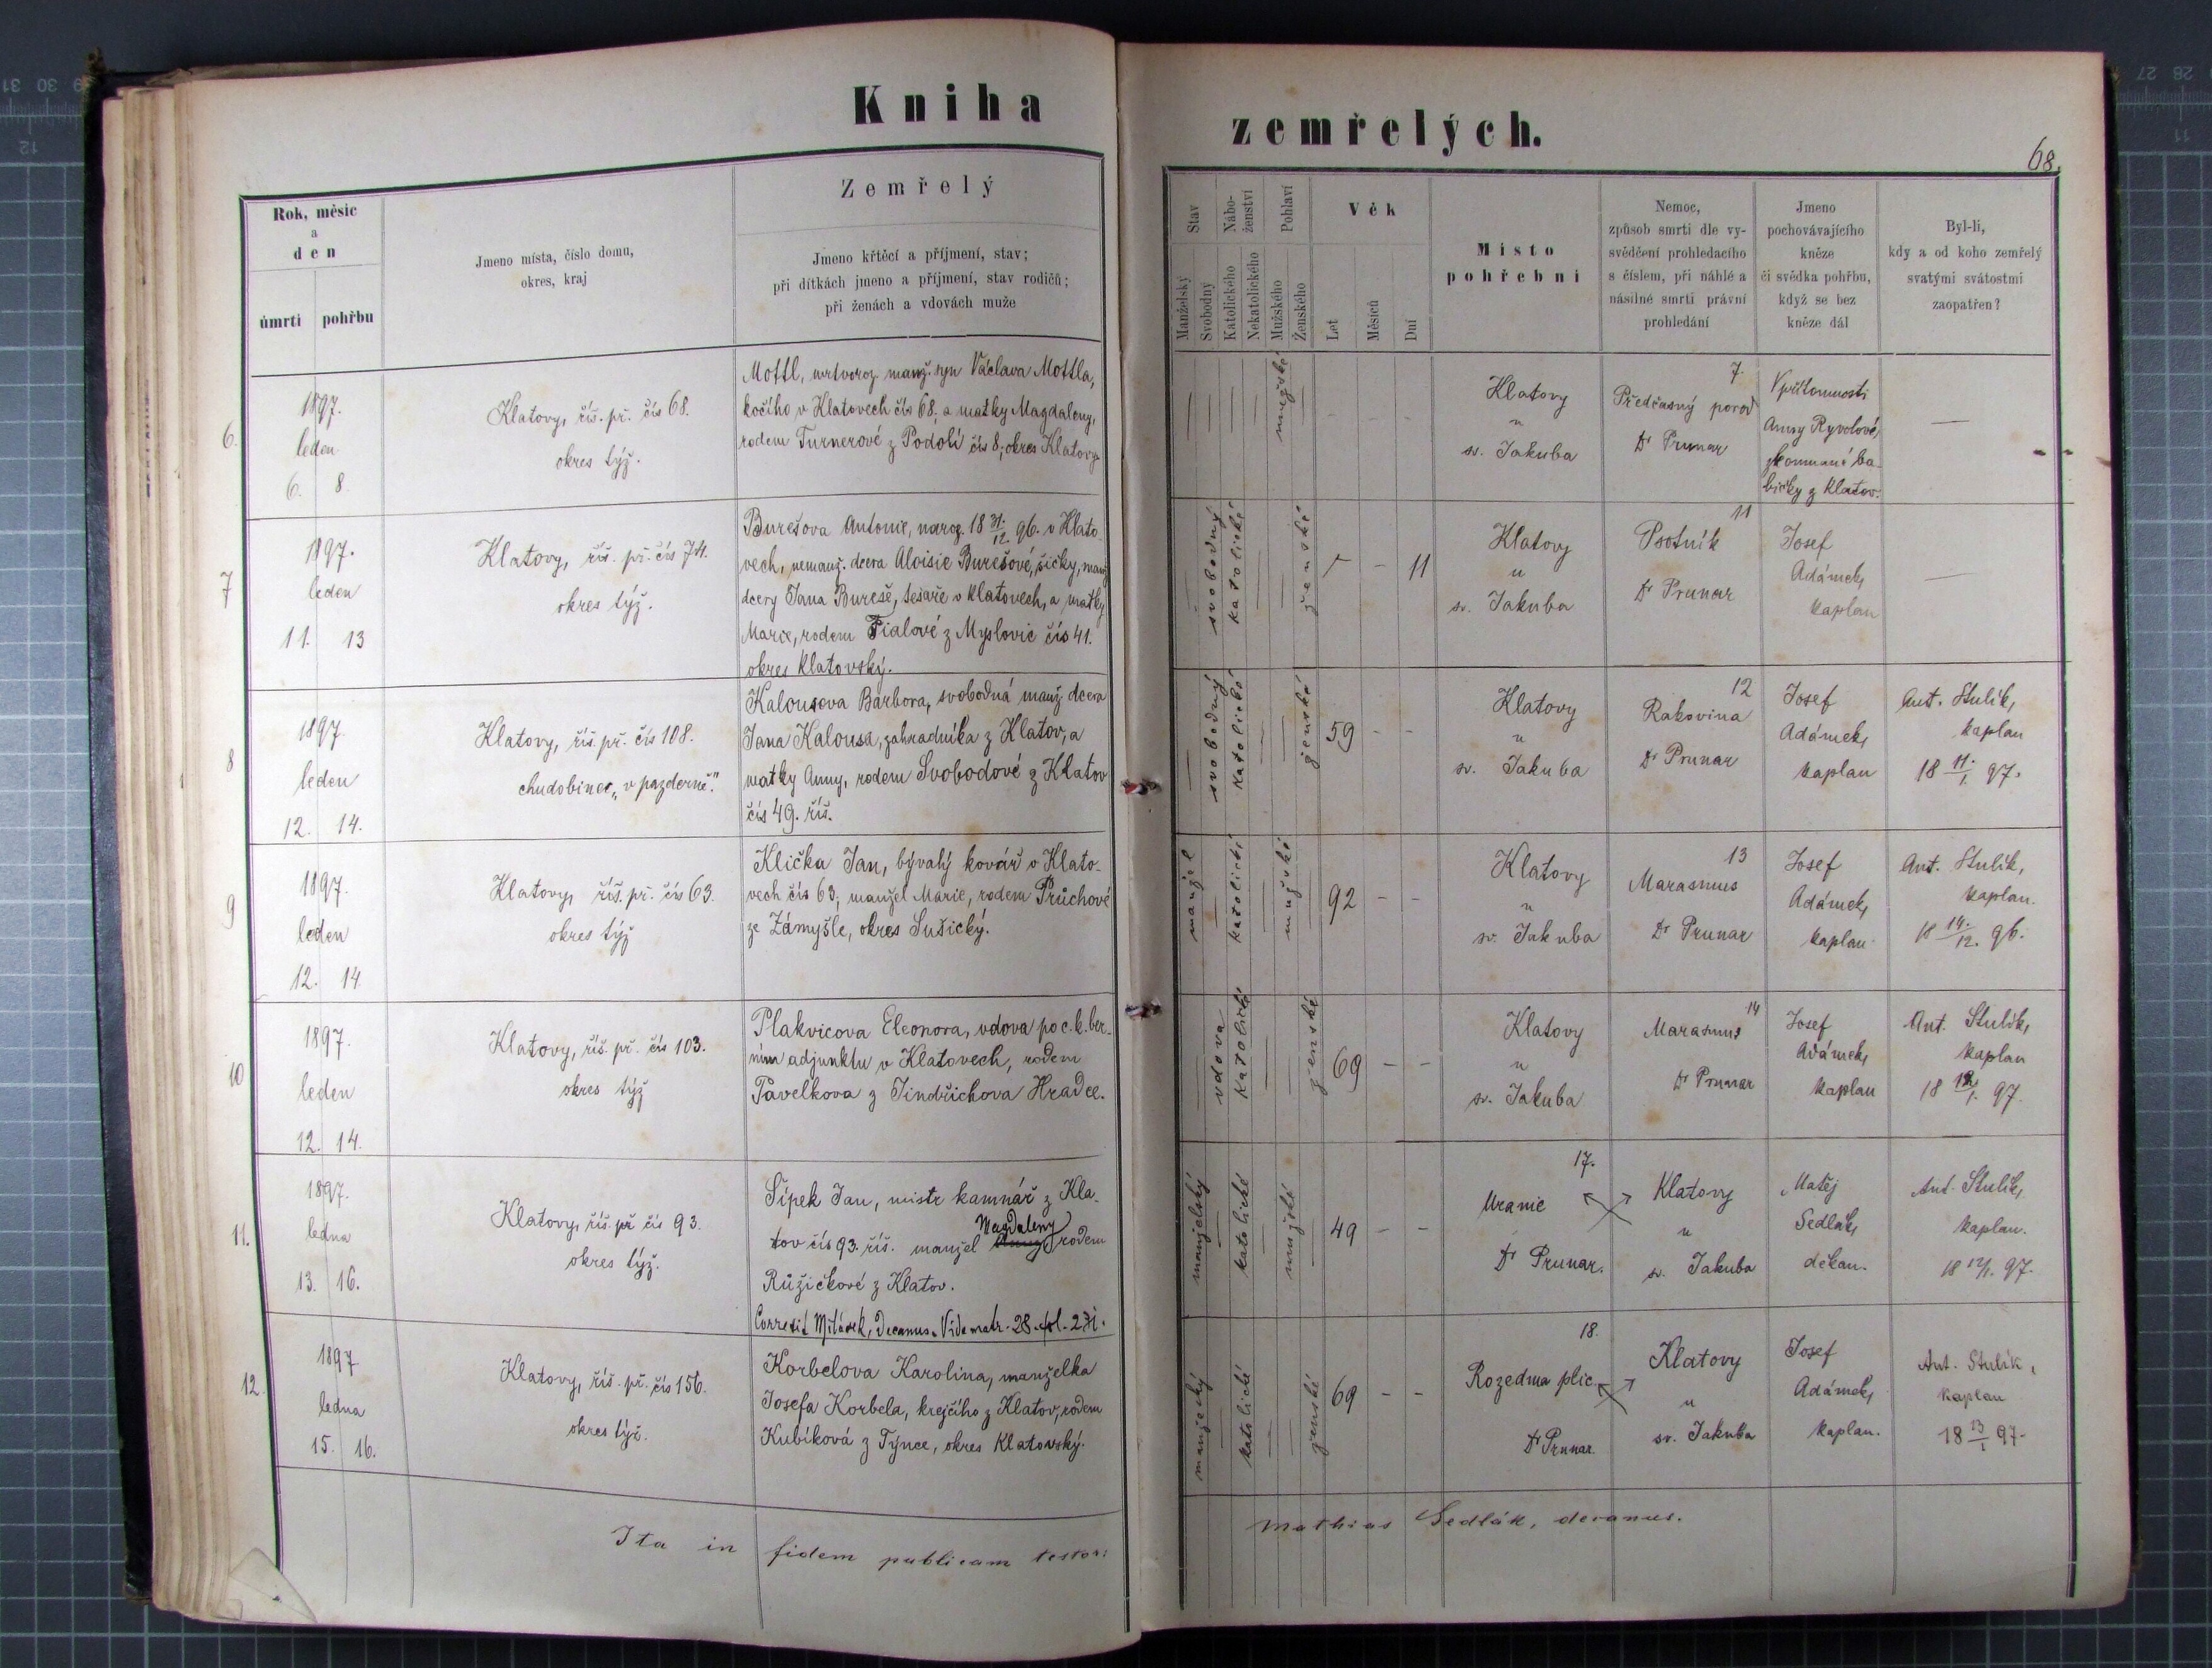 Kniha
zemřelých.
68.
Rok, měsíc
a
den
úmrtí pohřbu
Jmeno místa, číslo domu,
okres, kraj
Zemřelý
Jmeno křtěcí a příjmení, stav;
při dítkách jmeno a příjmení, stav rodičů;
při ženách a vdovách muže
Stav
Manželský
Svobodný
Nábo-
ženství
Katolického
Nekatolického
Pohlaví
Mužského
Ženského
Věk
Let
Měsíců
Dní
Místo
pohřební
Nemoc,
způsob smrti dle vy-
svědčení prohledacího
s číslem, při náhlé a
násilné smrti právní
prohledání
Jmeno
pochovávajícího
kněze
či svědka pohřbu,
když se bez
kněze dál
Byl-li,
kdy a od koho zemřelý
svatými svátostmi
zaopatřen?
6.
1897.
leden
6. 8
Klatovy, říš. př. čís 68.
okres týž.
Mottl, mrtvoroz manž. syn Václava Mottla,
kočího v Klatovech čís 68, a matky Magdaleny,
rodem Turnerové z Podolí čís 8, okres Klatovy
mužské
Klatovy
u
sv. Jakuba
7.
Předčasný porod
Dr Prunar
V přítomnosti
Anny Ryvolové,
zkoumané ba-
bičky z Klatov.
—
7
1897.
leden
11. 13
Klatovy, říš. př. čís 74.
okres týž.
Burešova Antonie, naroz. 18 31./12. 96. v Klato
vech, nemanž. dcera Aloisie Burešové, šičky, manž
dcery Jana Bureše, tesaře v Klatovech, a matky
Marie, rodem Fialové z Myslovic čís 41.
okres Klatovský.
svobodný
katolické
ženské
- - 11
Klatovy
u
sv. Jakuba
11
Psotník
Dr Prunar
Josef
Adámek,
kaplan
—
8
1897.
leden
12. 14.
Klatovy, říš. př. čís 108.
chudobinec „v pazderně."
Kalousova Barbora, svobodná manž dcera
Jana Kalousa, zahradníka z Klatov, a
matky Anny, rodem Svobodové z Klatov
čís 49. říš.
svobodný
katolické
ženské
59 - -
Klatovy
u
sv. Jakuba
12
Rakovina
Dr Prunar
Josef
Adámek,
kaplan
Ant. Stulík,
kaplan
18 11./1. 97.
9
1897.
leden
12. 14
Klatovy, říš. př. čís 63.
okres týž
Klička Jan, bývalý kovář v Klato-
vech čís 63, manžel Marie, rodem Průchové
ze Zámyšle, okres Sušický.
manžel
katolické
mužské
92 - -
Klatovy
u
sv. Jakuba
13
Marasmus
Dr Prunar
Josef
Adámek,
kaplan
Ant. Stulík,
kaplan.
18 14./12. 96.
10
1897.
leden
12. 14.
Klatovy, říš. př. čís 103.
okres týž
Plakvicova Eleonora, vdova po c. k. ber-
ním adjunktu v Klatovech, rodem
Pavelkova z Jindřichova Hradce.
vdova
katolické
ženské
69 - -
Klatovy
u
sv. Jakuba
14
Marasmus
Dr Prunar
Josef
Adámek,
kaplan
Ant. Stulík,
kaplan
18 /1. 97.
11.
1897.
ledna
13. 16.
Klatovy, říš. př čís 93.
okres týž.
Šípek Jan, mistr kamnář z Kla-
Magdaleny
tov čís 93. říš. manžel Anny, rodem
Růžičkové z Klatov.
Correxit Miláček, Decanus. Vide matr. 28. fol. 271.
manželský
katolické
mužské
49 - -
17.
Uranie
Dr Prunar.
Klatovy
u
sv. Jakuba
Matěj
Sedlák,
děkan.
Ant. Stulík,
kaplan.
18 12/1. 97.
12.
1897
ledna
15. 16.
Klatovy, říš. př. čís 156.
okres týž.
Korbelova Karolina, manželka
Josefa Korbela, krejčího z Klatov, rodem
Kubíková z Týnce, okres Klatovský.
manželský
katolické
ženské
69 - -
18.
Rozedma plic.
Dr Prunar.
Klatovy
u
sv. Jakuba
Josef
Adámek,
kaplan.
Ant. Stulík,
kaplan
18 13/1 97.
Ita in fidem publicam testor:
Mathias Sedlák, decanus.